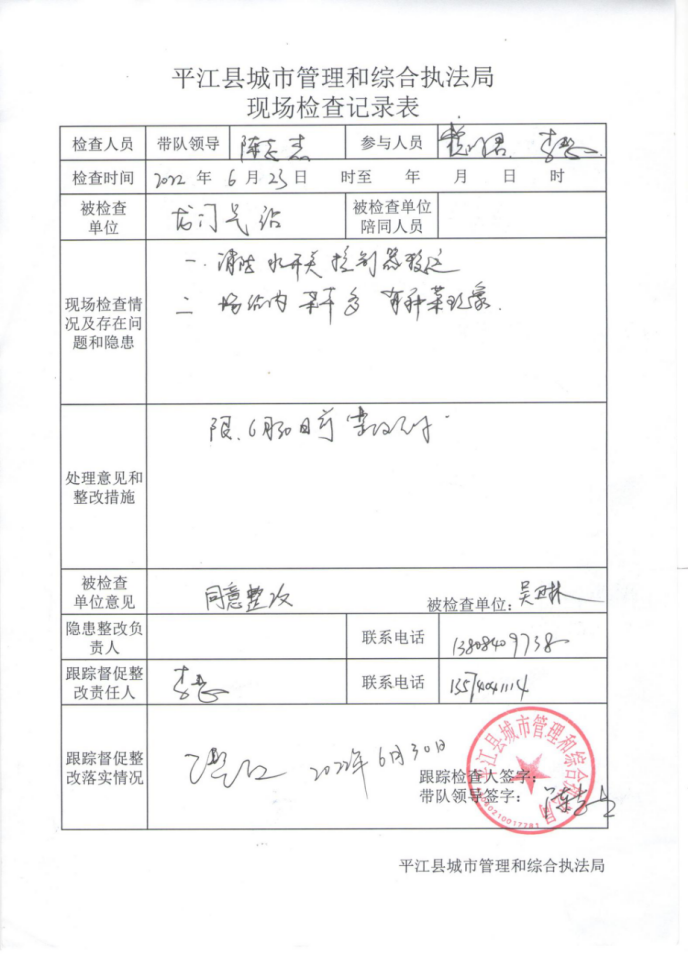 平江县城市管理和综合执法局
现场检查记录表
检查人员 带队领导 参与人员
检查时间 2022 年 6 月 23 日 时至 年 月 日 时
被检查单位 龙门气站 被检查单位陪同人员
现场检查情况及存在问题和隐患
一. 消防水开关控制器
二 场站内杂草多 有种菜现象.
处理意见和整改措施
限6月30日前
被检查单位意见 同意整改 被检查单位:
隐患整改负责人 联系电话 13808409738
跟踪督促整改责任人 联系电话 15574041114
跟踪督促整改落实情况
已整改 2022年6月30日
跟踪检查人签字:
带队领导签字:
平江县城市管理和综合执法局
平江县城市管理和综合执法局